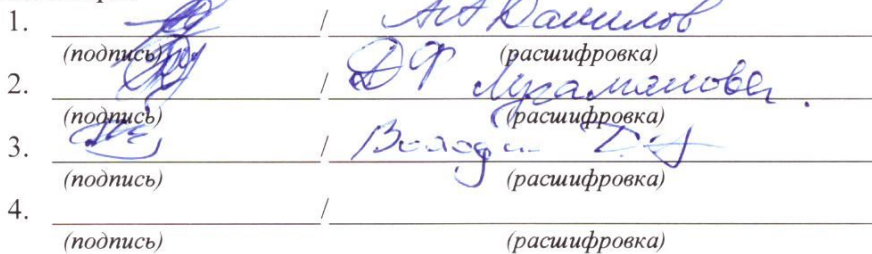 1. / АА Данилов
(подпись) (расшифровка)
2. / ДФ
(подпись) (расшифровка)
3. /
(подпись) (расшифровка)
4. /
(подпись) (расшифровка)